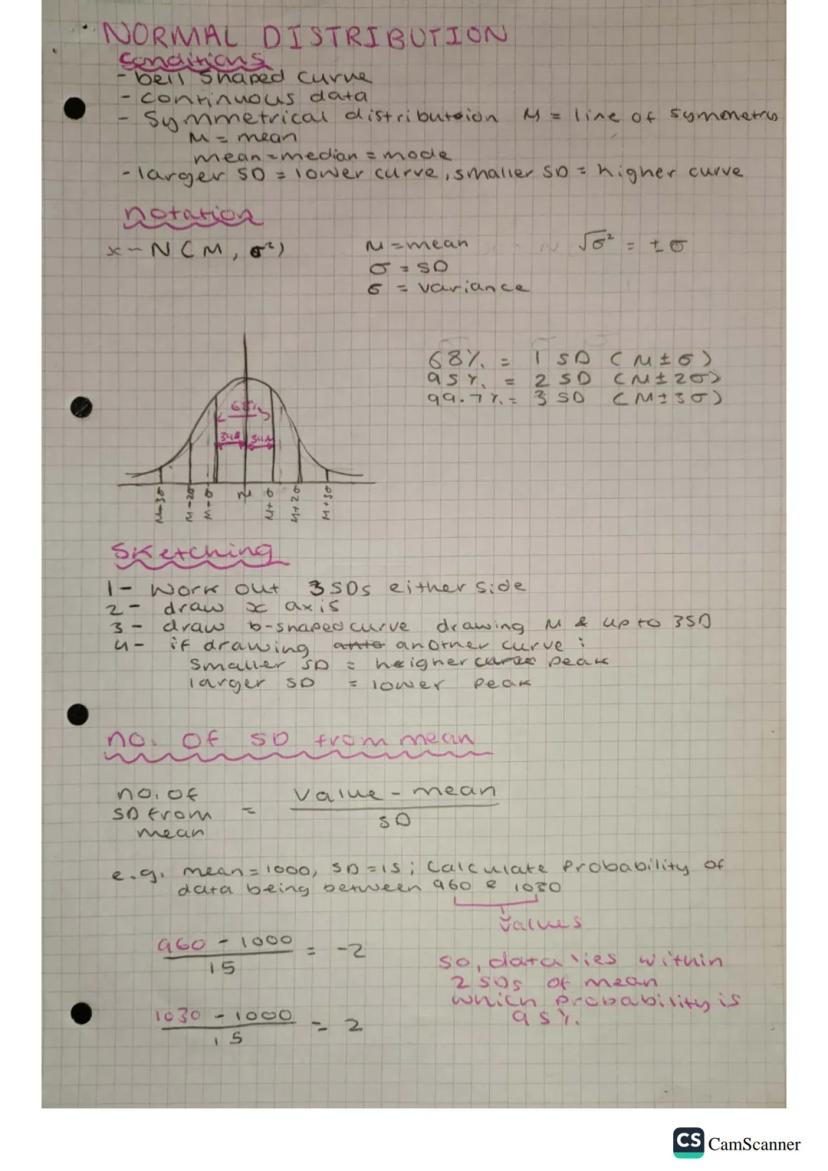 NORMAL DISTRIBUTION
Conditions
- bell shaped curve
- continuous data
- Symmetrical distribution M = line of symmetry
M = mean
mean = median = mode
- larger SD = lower curve, smaller SD = higher curve
notation
x ~ N (M, σ²)
M = mean
√σ² = ±σ
σ = SD
σ = variance
68% = 1 SD (M±σ)
95% = 2 SD (M±2σ)
99.7% = 3 SD (M±3σ)
68%
34% 34%
M-3σ M-2σ M-σ M M+σ M+2σ M+3σ
Sketching
1- Work out 3SDs either side
2- draw x axis
3- draw b-shaped curve drawing M & up to 3SD
4- if drawing another curve:
smaller SD = heigher peak
larger SD = lower peak
no. of SD from mean
no. of SD from mean = value - mean / SD
e.g. mean = 1000, SD = 15; Calculate Probability of
data being between 960 & 1030
values
960 - 1000 / 15 = -2
so, data lies within
2 SDs of mean
which probability is
95%.
1030 - 1000 / 15 = 2
CS CamScanner